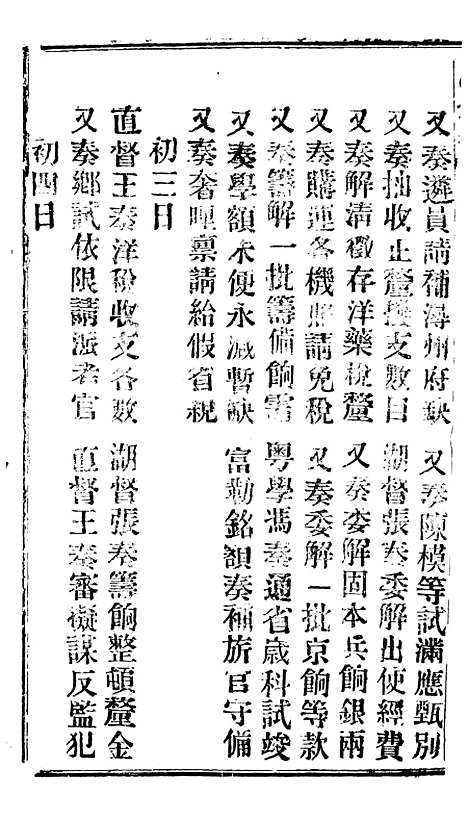 又奏遴員請補潯州府缺　又奏陳模等試滿應甄別
又奏抽收止釐與支數目　湖督張奏委解出使經費
又奏解清徵存洋藥稅釐　又奏委解固本兵餉銀兩
又奏購運各機照請免稅　又奏委解一批京餉等款
又奏籌解一批籌備餉需　粵學馮奏通省歲科試竣
又奏學額未便永減暫缺　富勒銘額奏補旅官守備
又奏奢暉稟請給假省親
初三日
直督王奏洋稅收支各數　湖督張奏籌餉整頓釐金
又奏鄉試依限請派考官　直督王奏審擬謀反監犯
初四日